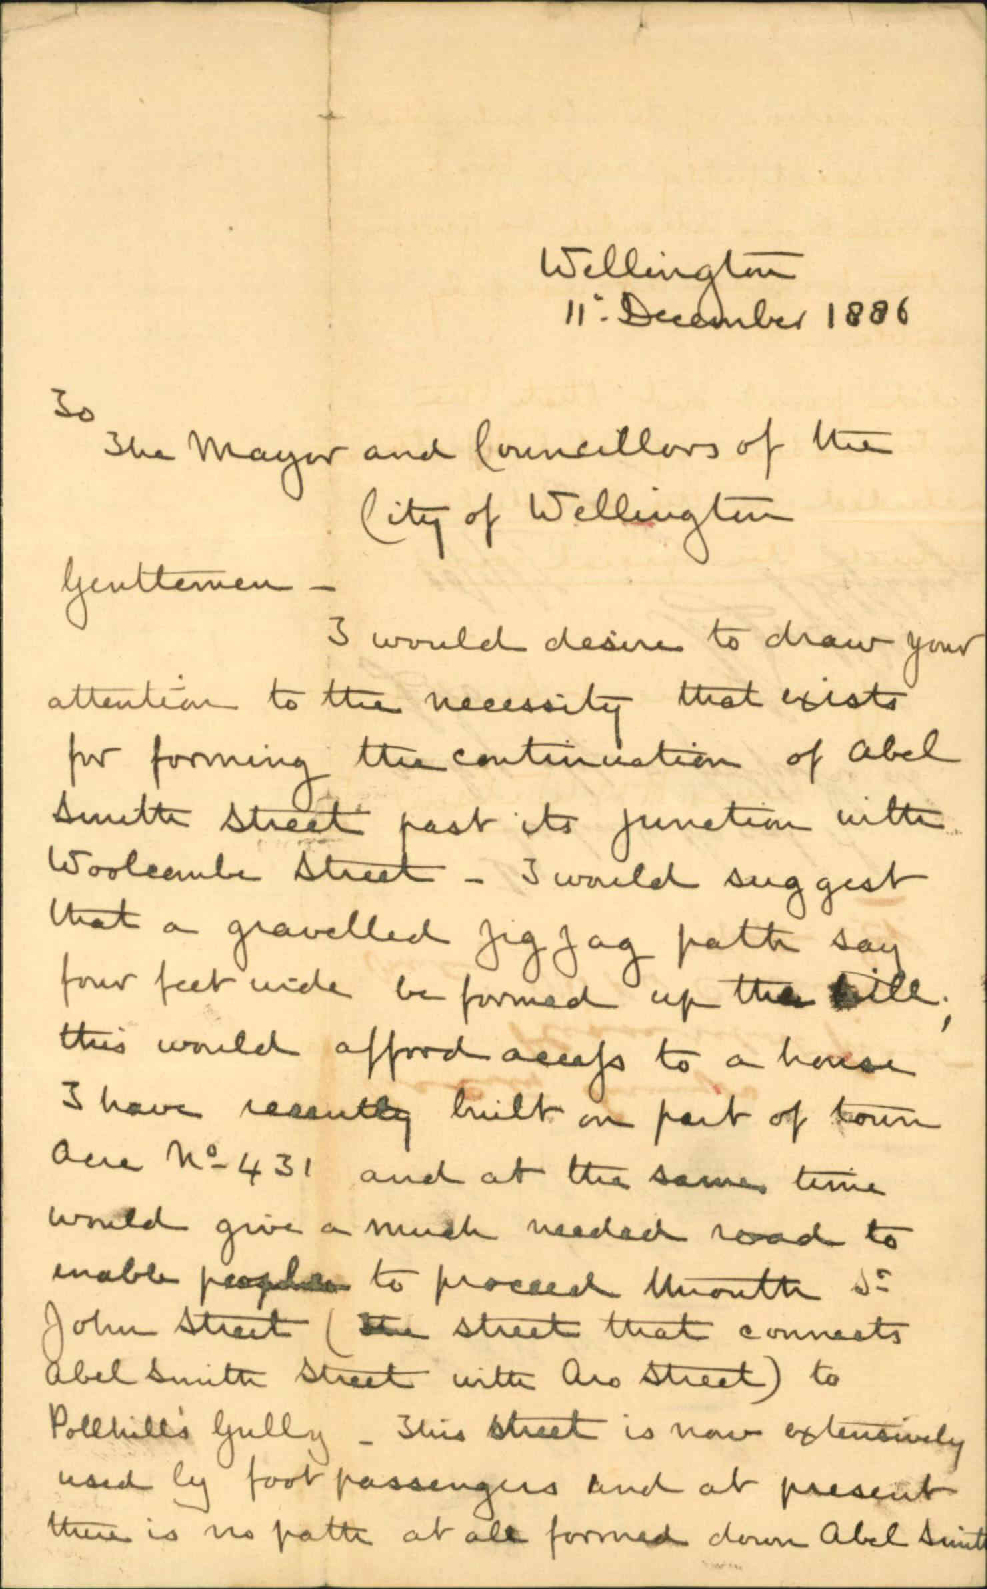 Wellington
11th December 1886
To
The Mayor and Councillors of the
City of Wellington
Gentlemen –
I would desire to draw your
attention to the necessity that exists
for forming the continuation of Abel
Smith Street past its junction with
Woolcombe Street – I would suggest
that a gravelled zig zag path say
four feet wide be formed up the hill;
this would afford access to a house
I have recently built on part of town
Acre No 431 and at the same time
would give a much needed road to
enable people to proceed through St
John Street (the street that connects
Abel Smith Street with Aro Street) to
Pollhill's Gully – This street is now extensively
used by foot passengers and at present
there is no path at all formed down Abel Smith